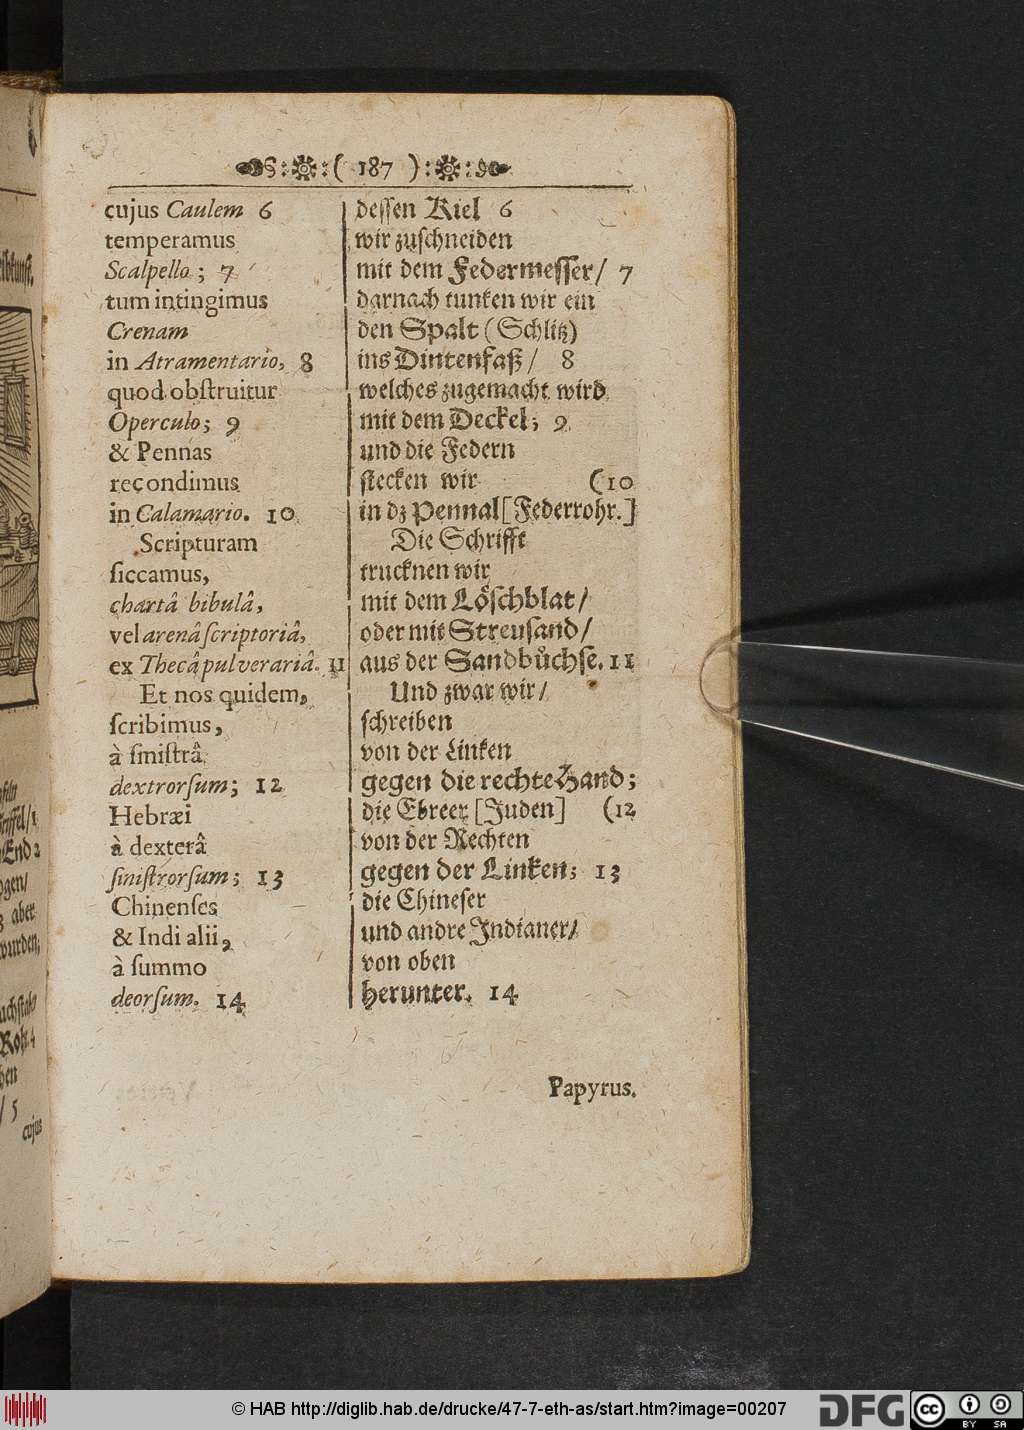 :( 187 ):
cujus Caulem 6
temperamus
Scalpello; 7
tum intingimus
Crenam
in Atramentario, 8
quod obſtruitur
Operculo; 9
& Pennas
recondimus
in Calamario. 10
Scripturam
ſiccamus,
chartâ bibulâ,
vel arenâ ſcriptoriâ,
ex Thecâ pulverariâ. 11
Et nos quidem,
ſcribimus,
à ſiniſtrâ
dextrorſum; 12
Hebræi
à dexterâ
ſiniſtrorſum; 13
Chinenſes
& Indi alii,
à ſummo
deorſum. 14
deſſen Kiel 6
wir zuſchneiden
mit dem Federmeſſer/ 7
darnach tunken wir ein
den Spalt (Schlitz)
ins Dintenfaß/ 8
welches zugemacht wird
mit dem Deckel; 9
und die Federn
ſtecken wir (10
in dz Pennal[Federrohr.]
Die Schrifft
trucknen wir
mit dem Löſchblat/
oder mit Streuſand/
aus der Sandbuͤchſe. 11
Und zwar wir/
ſchreiben
von der Linken
gegen die rechte Hand;
die Ebreer [Juden] (12
von der Rechten
gegen der Linken; 13
die Chineſer
und andre Indianer/
von oben
herunter. 14
Papyrus.
cujus
© HAB http://diglib.hab.de/drucke/47-7-eth-as/start.htm?image=00207
DFG
cc BY SA